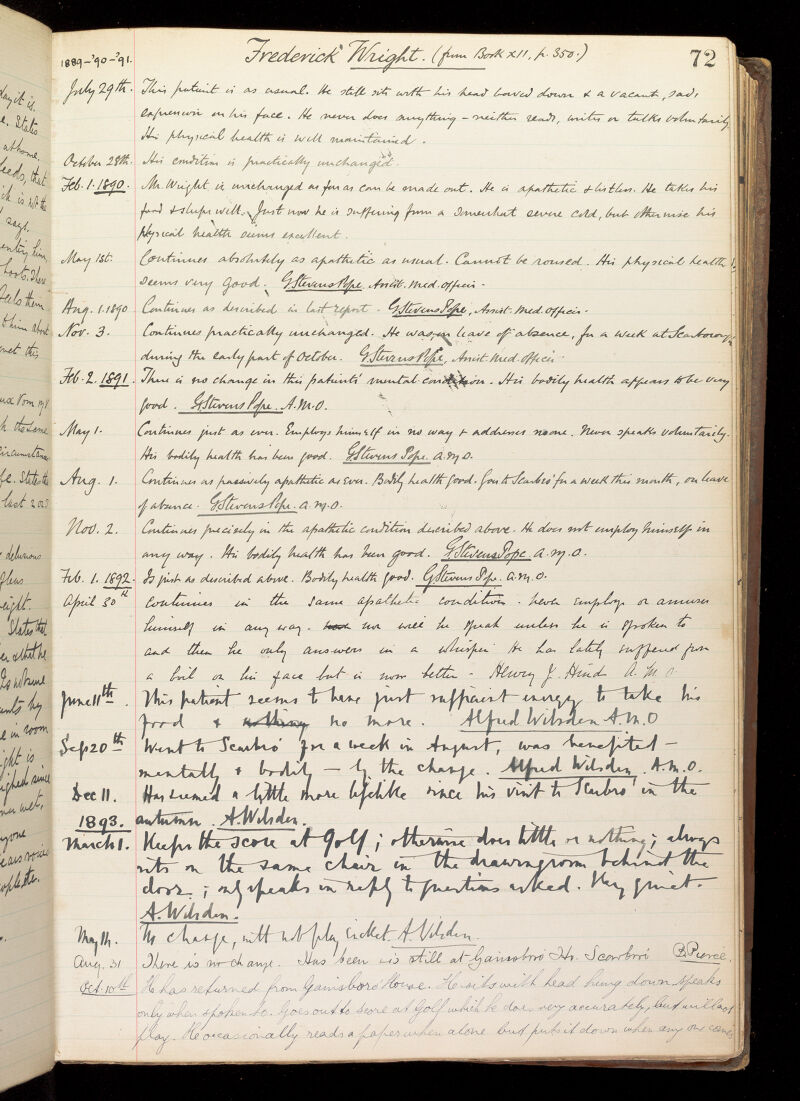 day it is
e. States
at home.
Leeds, that
ick is not the
says.
enting him
hosts. There
feels them
t him about
met this
the same
circumstance
fe. States the
last 2 or 3
delusions
eight.
States that
in room
ight is
eighed since
1889-'90-'91. Frederick Wright. (from Book XII, p. 350.) 72
July 29th. This patient is as usual. He still sits with his head bowed down & a vacant, sad
expression on his face. He never does anything – neither reads, writes or talks voluntarily.
His physical health is well maintained.
October 28th. His condition is practically unchanged.
Feb. 1. 1890. Mr. Wright is unchanged as far as can be made out. He is apathetic & listless. He takes his
food & sleeps well. Just now he is suffering from a somewhat severe cold, but otherwise his
physical health seems excellent.
May 1st. Continues absolutely as apathetic as usual. Cannot be roused. His physical health
seems very good. G Stevens Pope, Assist. Med. Officer.
Aug. 1. 1890 Continues as described in last report. G Stevens Pope, Assist. Med. Officer.
Nov. 3. Continues practically unchanged. He was on leave of absence, for a week at Scarborough,
during the early part of October. G Stevens Pope, Assist Med Officer
Feb. 2. 1891. There is no change in this patients' mental condition. His bodily health appears to be very
good. G Stevens Pope. A.M.O.
May 1. Continues just as ever. Employs himself in no way & addresses no one. Never speaks voluntarily.
His bodily health has been good. G Stevens Pope. A.M.O.
Aug. 1. Continues as passively apathetic as ever. Bodily health good. Goes to Scarbro' for a week this month, on leave
of absence. G Stevens Pope. A.M.O.
Nov. 2. Continues precisely in the apathetic condition described above. He does not employ himself in
any way. His bodily health has been good. G Stevens Pope A.M.O.
Feb. 1. 1892. Is just as described above. Bodily health good. G Stevens Pope. A.M.O.
April 30th Continues in the same apathetic condition. Never employs or amuses
himself in any way. nor will he speak unless he is spoken to
and then he only answers in a whisper. He has lately suffered from
a boil on his face but is now better – Henry J. Hinds A.M.O
June 11th. This patient seems to have just sufficient energy to take his
food & nothing no more. Alfred Wilsden A.M.O
Sep 20th Went to Scarbro' for a week in August, was benefited –
mentally & bodily – by the change. Alfred Wilsden. A.M.O.
Dec 11. Has seemed a little more lifelike since his visit to Scarbro' in the
1893. autumn. A. Wilsden.
March 1. Keeps the score at golf; otherwise does little or nothing; always
sits on the same chair in the drawingroom behind the
door; only speaks in reply to questions asked. Very quiet.
A. Wilsden.
May 14. No change, will not play Cricket. A. Wilsden.
Aug. 31 There is no change. Has been & is still at Gainsboro Ho. Scarboro B Pierce.
Oct. 10th He has returned from Gainsboro' House. He sits with head hung down, speaks
only when spoken to. Goes out to score at Golf which he does very accurately, but will not
play. He occasionally reads a paper when alone but puts it down when any one comes